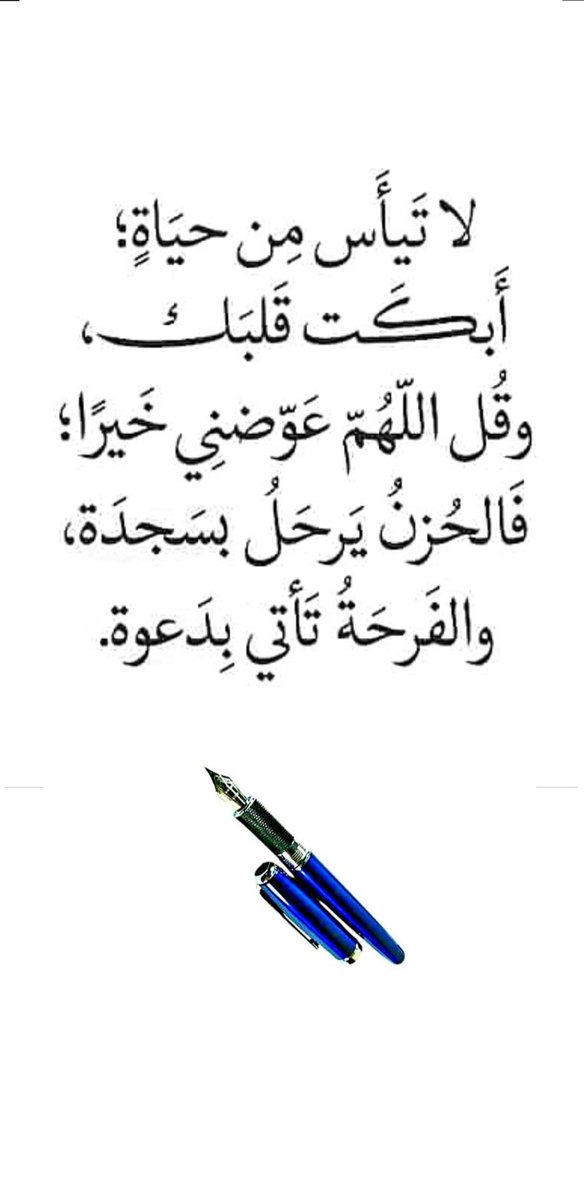 لا تَيأَس مِن حيَاةٍ؛
أَبكَت قَلبَك،
وقُل اللّهُمّ عَوّضنِي خَيرًا؛
فَالحُزنُ يَرحَلُ بسَجدَة،
والفَرحَةُ تَأتي بِدَعوة.